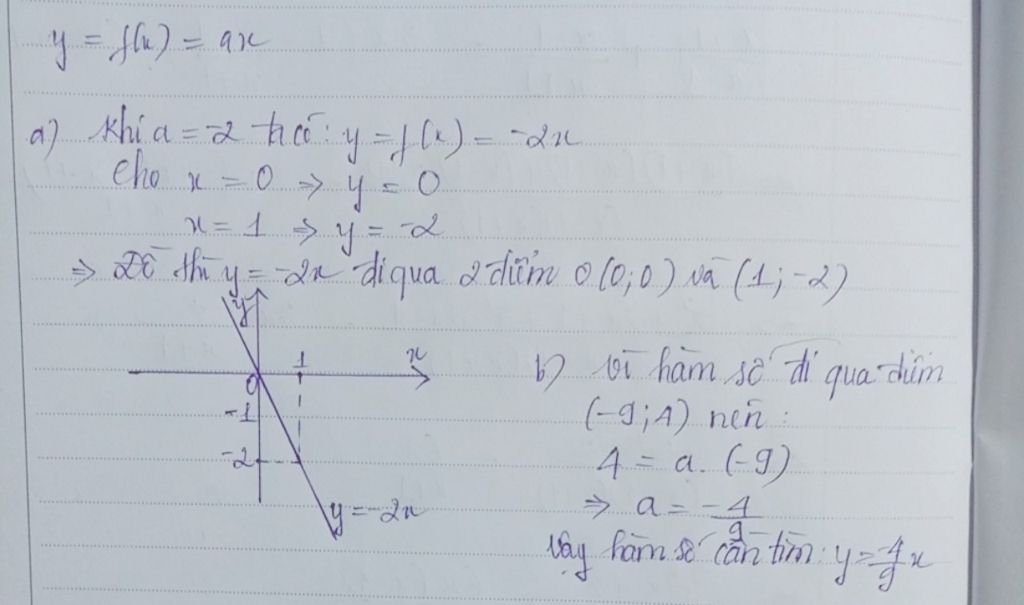 y = f(x) = ax
a) Khi a = -2 ta có: y = f(x) = -2x
Cho x = 0 => y = 0
x = 1 => y = -2
=> Đồ thị y = -2x đi qua 2 điểm O(0;0) và (1;-2)
y
1
x
0
-1
-2
y = -2x
b) Vì hàm số đi qua điểm
(-9;4) nên :
4 = a. (-9)
=> a = -4/9
Vậy hàm số cần tìm: y = -4/9 x